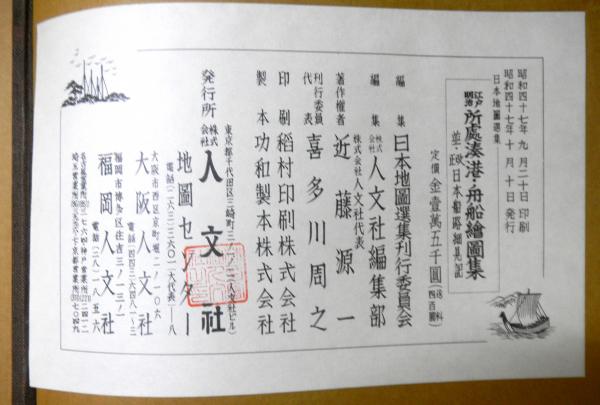 昭和四十七年九月二十日印刷
昭和四十七年十月十日発行
日本地圖選集
江戸明治 所處湊港・舟船繪圖集
並・改正日本船路細見記
定價 金壹萬五千圓（送料四百圓）
編集 日本地圖選集刊行委員会
編集 株式会社 人文社編集部
著作權者 株式会社人文社代表 近藤源一
刊行委員代表 喜多川周之
印刷 稻村印刷株式会社
製本 功和製本株式会社
発行所 株式会社 人文社
東京都千代田区三崎町三ノ一ノ一（人文社ビル）
地圖センター
大阪市西区京町堀二ノ一〇六
大阪人文社
福岡市博多区住吉三ノ一三ノ一
福岡人文社